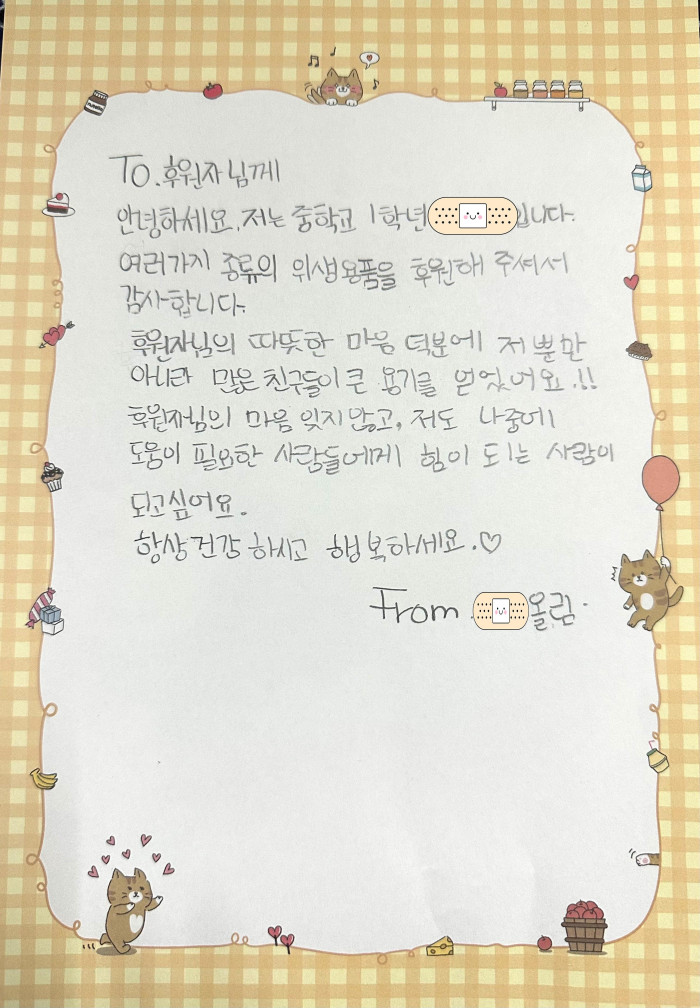 To. 후원자님께
안녕하세요, 저는 중학교 1학년 입니다.
여러가지 종류의 위생용품을 후원해 주셔서
감사합니다.
후원자님의 따뜻한 마음 덕분에 저 뿐만
아니라 많은 친구들이 큰 용기를 얻었어요.!!
후원자님의 마음 잊지않고, 저도 나중에
도움이 필요한 사람들에게 힘이 되는 사람이
되고싶어요.
항상 건강하시고 행복하세요.♡
From. 올림.